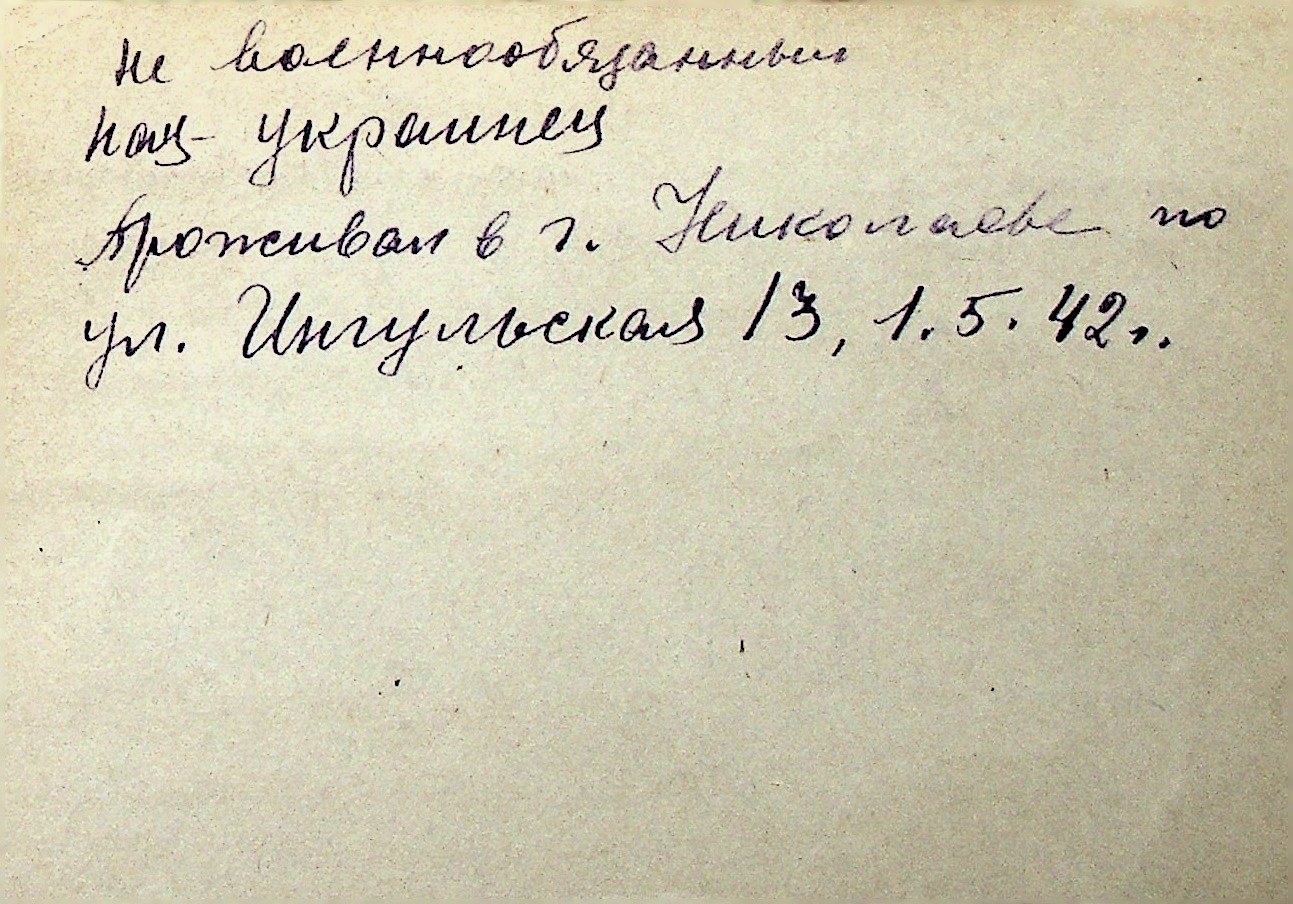 не военнообязанный
нац- украинец
Проживал в г. Николаеве по
ул. Ингульская 13, 1.5.42г.